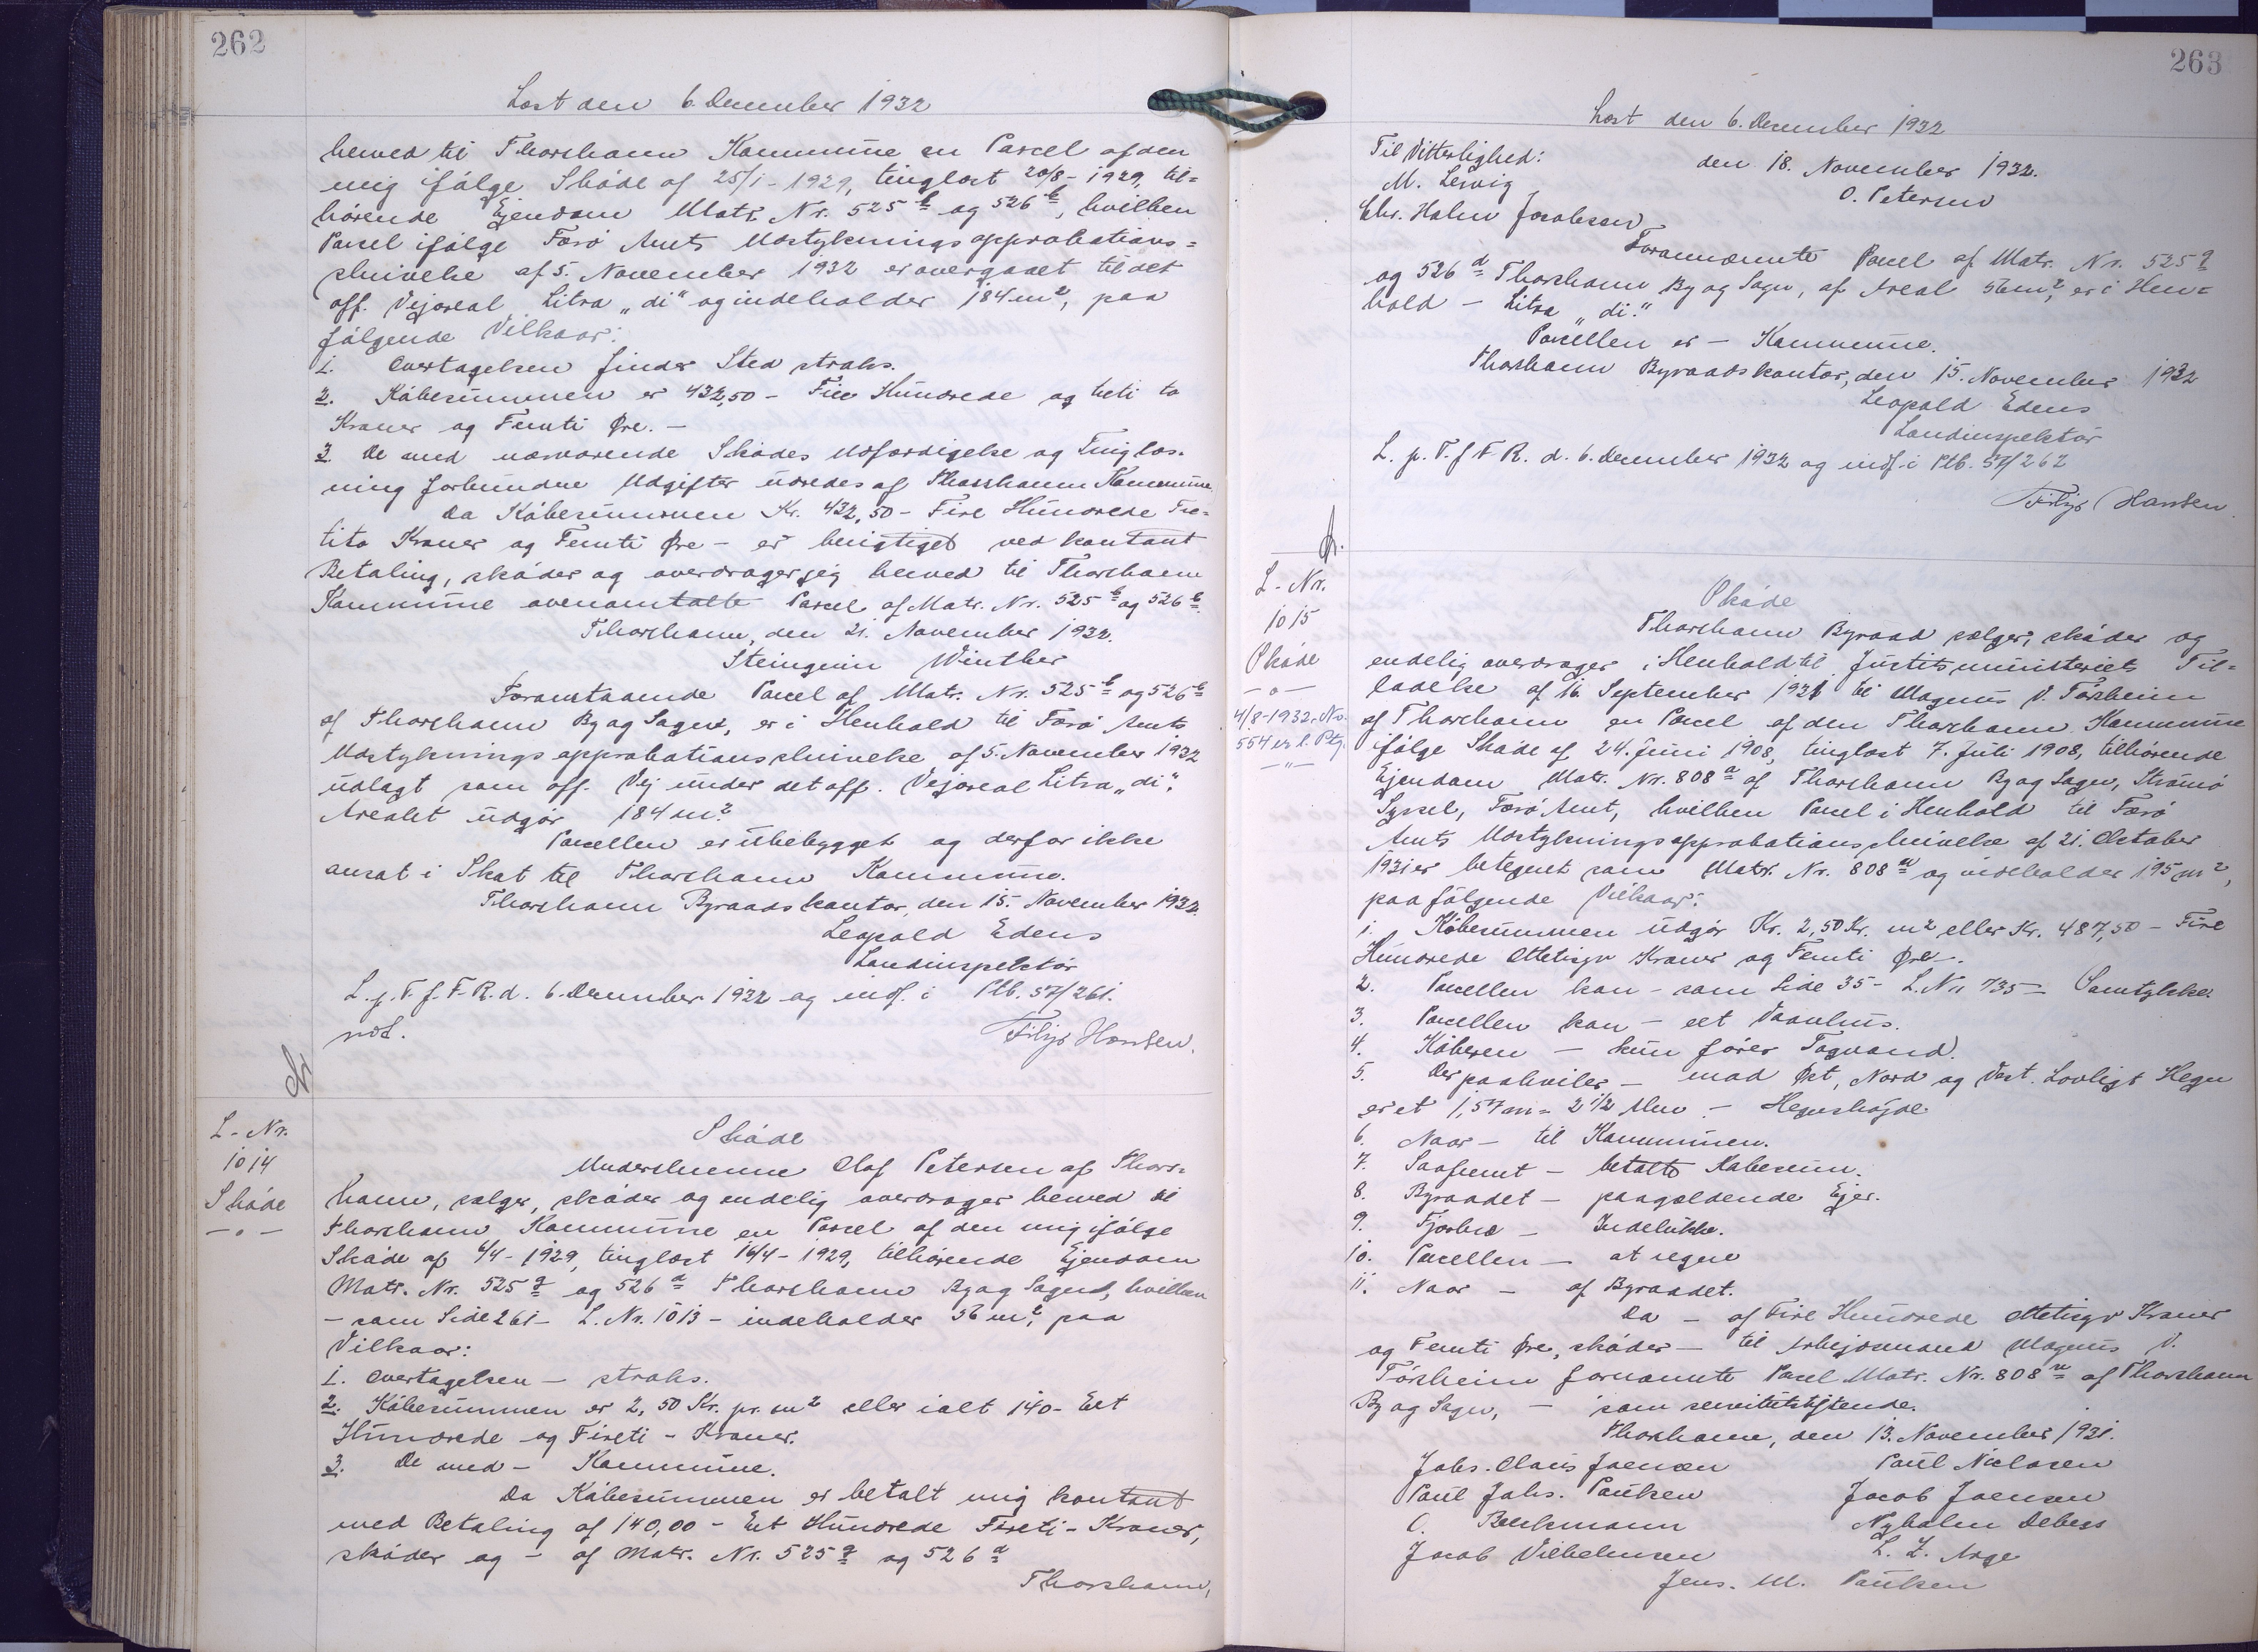 262
Læst den 6. December 1932
herved til Thorshavn Kommune en Parcel af den
mig ifølge Skøde af 25/1-1929, tinglæst 20/8-1929, til=
hørende Ejendom Matr. Nr. 525 b og 526 b, hvilken
Parcel ifølge Færø Amts Udstyknings approbations=
skrivelse af 5. November 1932 er overgaaet til det
off. Vejareal Litra „di“ og indeholder 184 m², paa
følgende Vilkaar:
1. Overtagelsen finder Sted straks.
2. Købesummen er 432,50 - Fire Hundrede og treti to
Kroner og Femti Øre. -
3. De med nærværende Skødes Udfærdigelse og Tinglæs-
ning forbundne Udgifter udredes af Thorshavn Kommune.
Da Købesummen Kr. 432,50 - Fire Hundrede Tre=
tito Kroner og Femti Øre - er berigtiget ved kontant
Betaling, skøder og overdrager jeg herved til Thorshavn
Kommune ovenomtalte Parcel af Matr. Nr. 525 b og 526 b.
Thorshavn, den 21. November 1932.
Steingrim Winther
Foranstaaende Parcel af Matr. Nr. 525 b og 526 b
af Thorshavn By og Sogn, er i Henhold til Færø Amts
Udstyknings approbationsskrivelse af 5. November 1932
udlagt som off. Vej under det off. Vejareal Litra „di“.
Arealet udgør 184 m²
Parcellen er ubebygget og derfor ikke
ansat i Skat til Thorshavn Kommune.
Thorshavn Byraadskontor, den 15. November 1932.
Leopold Edens
Landinspektør
L. p. T. f. F. R. d. 6. December 1932 og indf. i Ptb. 57/261.
ndL.
Filip Hansen.
L-Nr.
1014
Skøde
-„-
Skøde
Underskrevne Olaf Petersen af Thors=
havn, sælger, skøder og endelig overdrager herved til
Thorshavn Kommune en Parcel af den mig ifølge
Skøde af 4/4-1929, tinglæst 16/4-1929, tilhørende Ejendom
Matr. Nr. 525 q og 526 d Thorshavn By og Sogn, hvilken
- som Side 261 - L. Nr. 1013 - indeholder 56 m², paa
Vilkaar:
1. Overtagelsen - straks.
2. Købesummen er 2,50 Kr. pr. m² eller ialt 140 - Eet
Hundrede og Fireti - Kroner.
3. De med - Kommune.
Da Købesummen er betalt mig kontant
med Betaling af 140,00 - Eet Hundrede Fireti - Kroner,
skøder og - af Matr. Nr. 525 q og 526 d
Thorshavn,
263
Læst den 6. December 1932
Til Vitterlighed:
den 18. November 1932.
M. Lervig
O. Petersen
Chr. Holm Jacobsen
Forannævnte Parcel af Matr. Nr. 525 q
og 526 d Thorshavn By og Sogn, af Areal 56 m², er i Hen=
hold - Litra „di“.
Parcellen er - Kommune.
Thorshavn Byraadskontor, den 15. November 1932
Leopold Edens
Landinspektør
L. p. T. f. F. R. d. 6. December 1932 og indf. i Ptb. 57/262
Filip Hansen.
L-Nr.
1015
Skøde
-„-
4/8-1932. Nr.
554 er l. Ptg.
-„-
Skøde
Thorshavn Byraad sælger, skøder og
endelig overdrager i Henhold til Justitsministeriets Til=
ladelse af 16. September 1931 til Magnus V. Førheim
af Thorshavn en Parcel af den Thorshavn Kommune
ifølge Skøde af 24. Juni 1908, tinglæst 7. Juli 1908, tilhørende
Ejendom Matr. Nr. 808 a af Thorshavn By og Sogn, Strømø
Syssel, Færø Amt, hvilken Parcel i Henhold til Færø
Amts Udstykningsapprobationsskrivelse af 21. Oktober
1931 er betegnet som Matr. Nr. 808 og indeholder 195 m²,
paa følgende Vilkaar:
1. Købesummen udgør Kr. 2,50 Kr. m² eller Kr. 487,50 - Fire
Hundrede Ottetisyv Kroner og Femti Øre -.
2. Parcellen kan - som Side 35 - L. Nr. 735 - Samtykke.
3. Parcellen kan - eet Vaanhus.
4. Køberen - kun fører Tagvand.
5. Der paahviler - mod Øst, Nord og Vest. Lovligt Hegn
er et 1,57 m = 2 1/2 Alen - Hegnshøjde
6. Naar - til Kommunen.
7. Saafremt - betalte Købesum.
8. Byraadet - paagældende Ejer.
9. Fjerkræ - Indelukke.
10. Parcellen - at regne
11. Naar - af Byraadet.
Da - af Fire Hundrede Ottetisyv Kroner
og Femti Øre, skøder - til Arbejdsmand Magnus V.
Førheim fornævnte Parcel Matr. Nr. 808 af Thorshavn
By og Sogn, - som servitutstiftende.
Thorshavn, den 13. November 1931.
Johs. Olavs Joensen Poul Niclasen
Poul Johs. Poulsen Jacob Joensen
O. Beckmann Nyholm Debess
Jacob Vilhelmsen L. Z. Arge
Jens. M. Poulsen